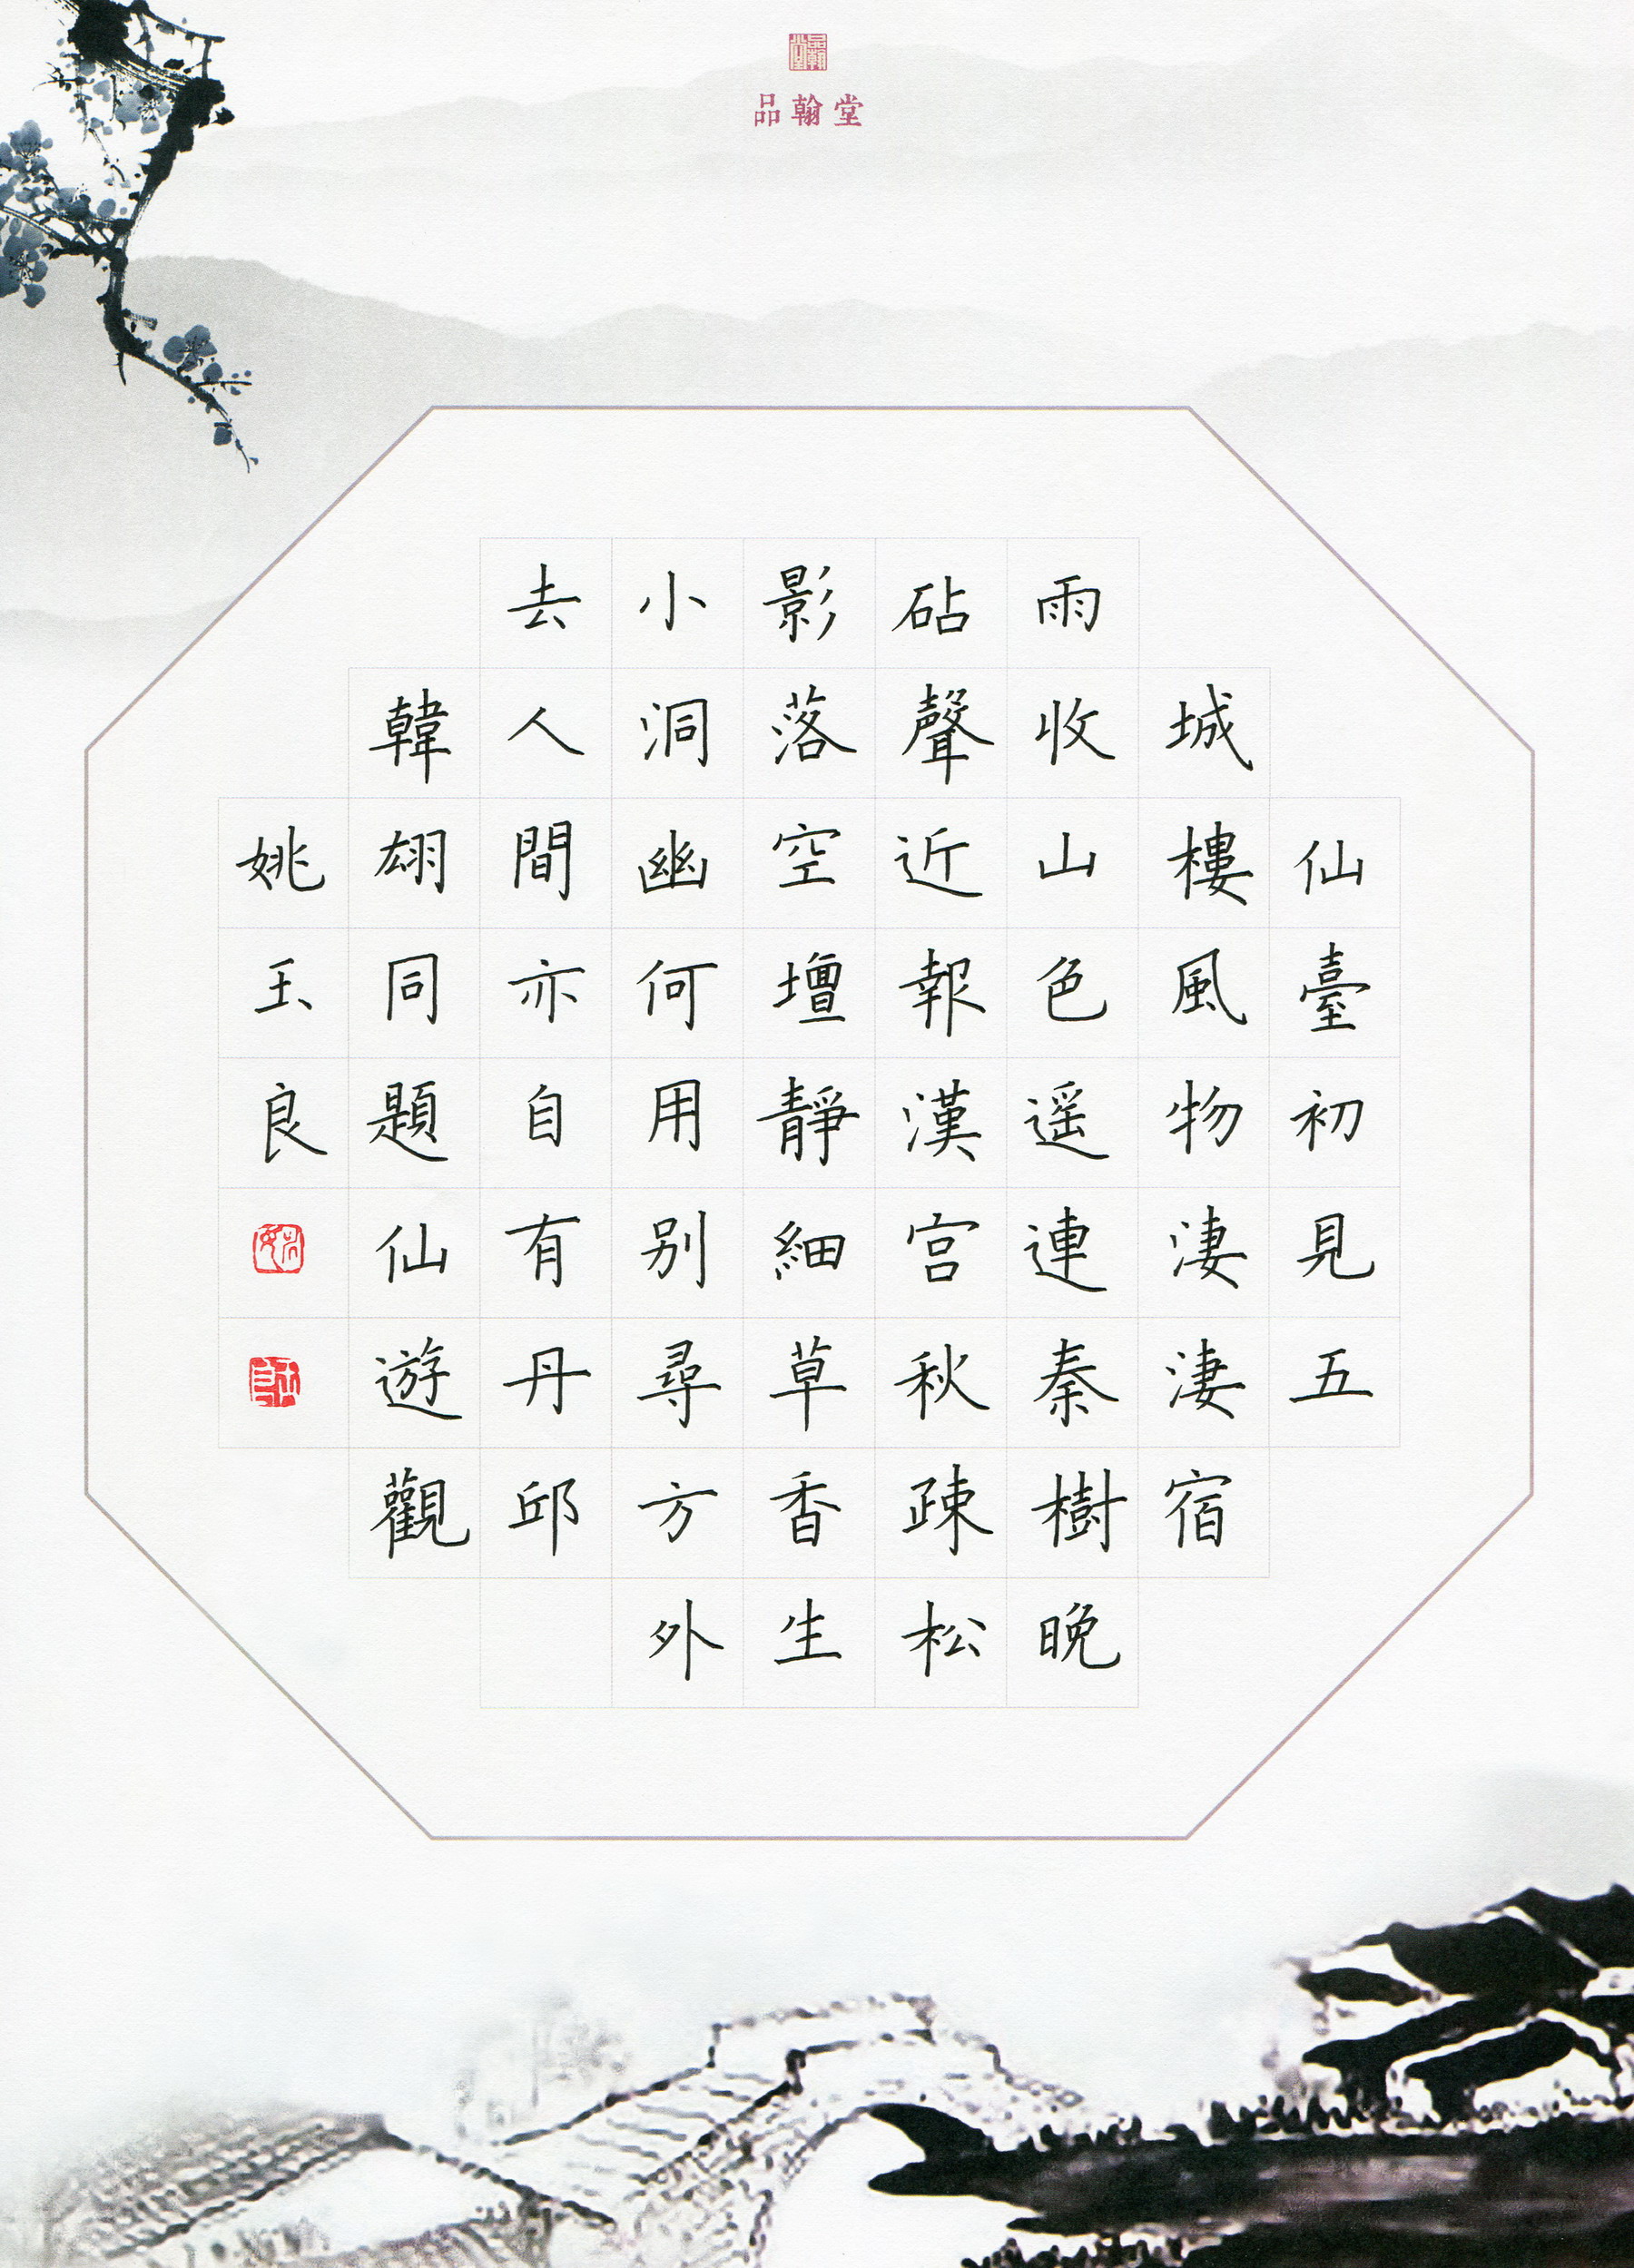 品翰堂
仙臺初見五
城樓風物淒淒宿
雨收山色遥連秦樹晚
砧聲近報漢宮秋疎松
影落空壇靜細草香生
小洞幽何用別尋方外
去人間亦自有丹邱
韓翃同題仙遊觀
姚玉良